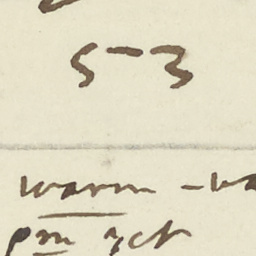 53
warm
pm yet